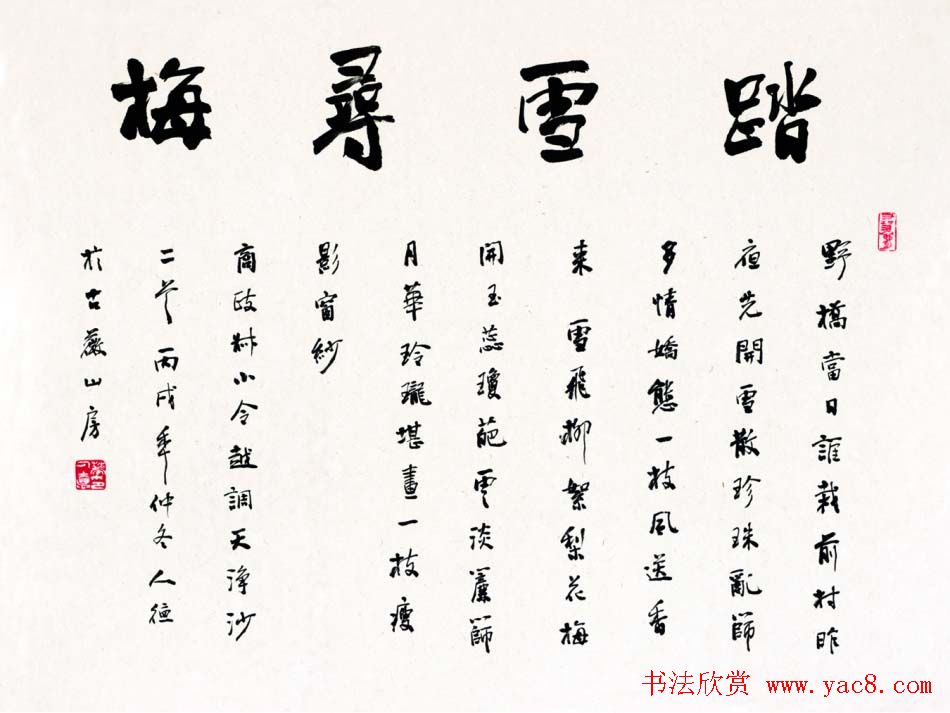 踏雪尋梅
野橋當日誰栽前村昨
夜先開雪散珍珠亂篩
多情嬌態一枝風送香
来 雪飛柳絮梨花梅
開玉蕊瓊葩雲淡簾篩
月華玲瓏堪畫一枝瘦
影窗紗
商政叔小令越調天淨沙
二首丙戌年仲冬人德
於古山房
书法欣赏 www.yac8.com